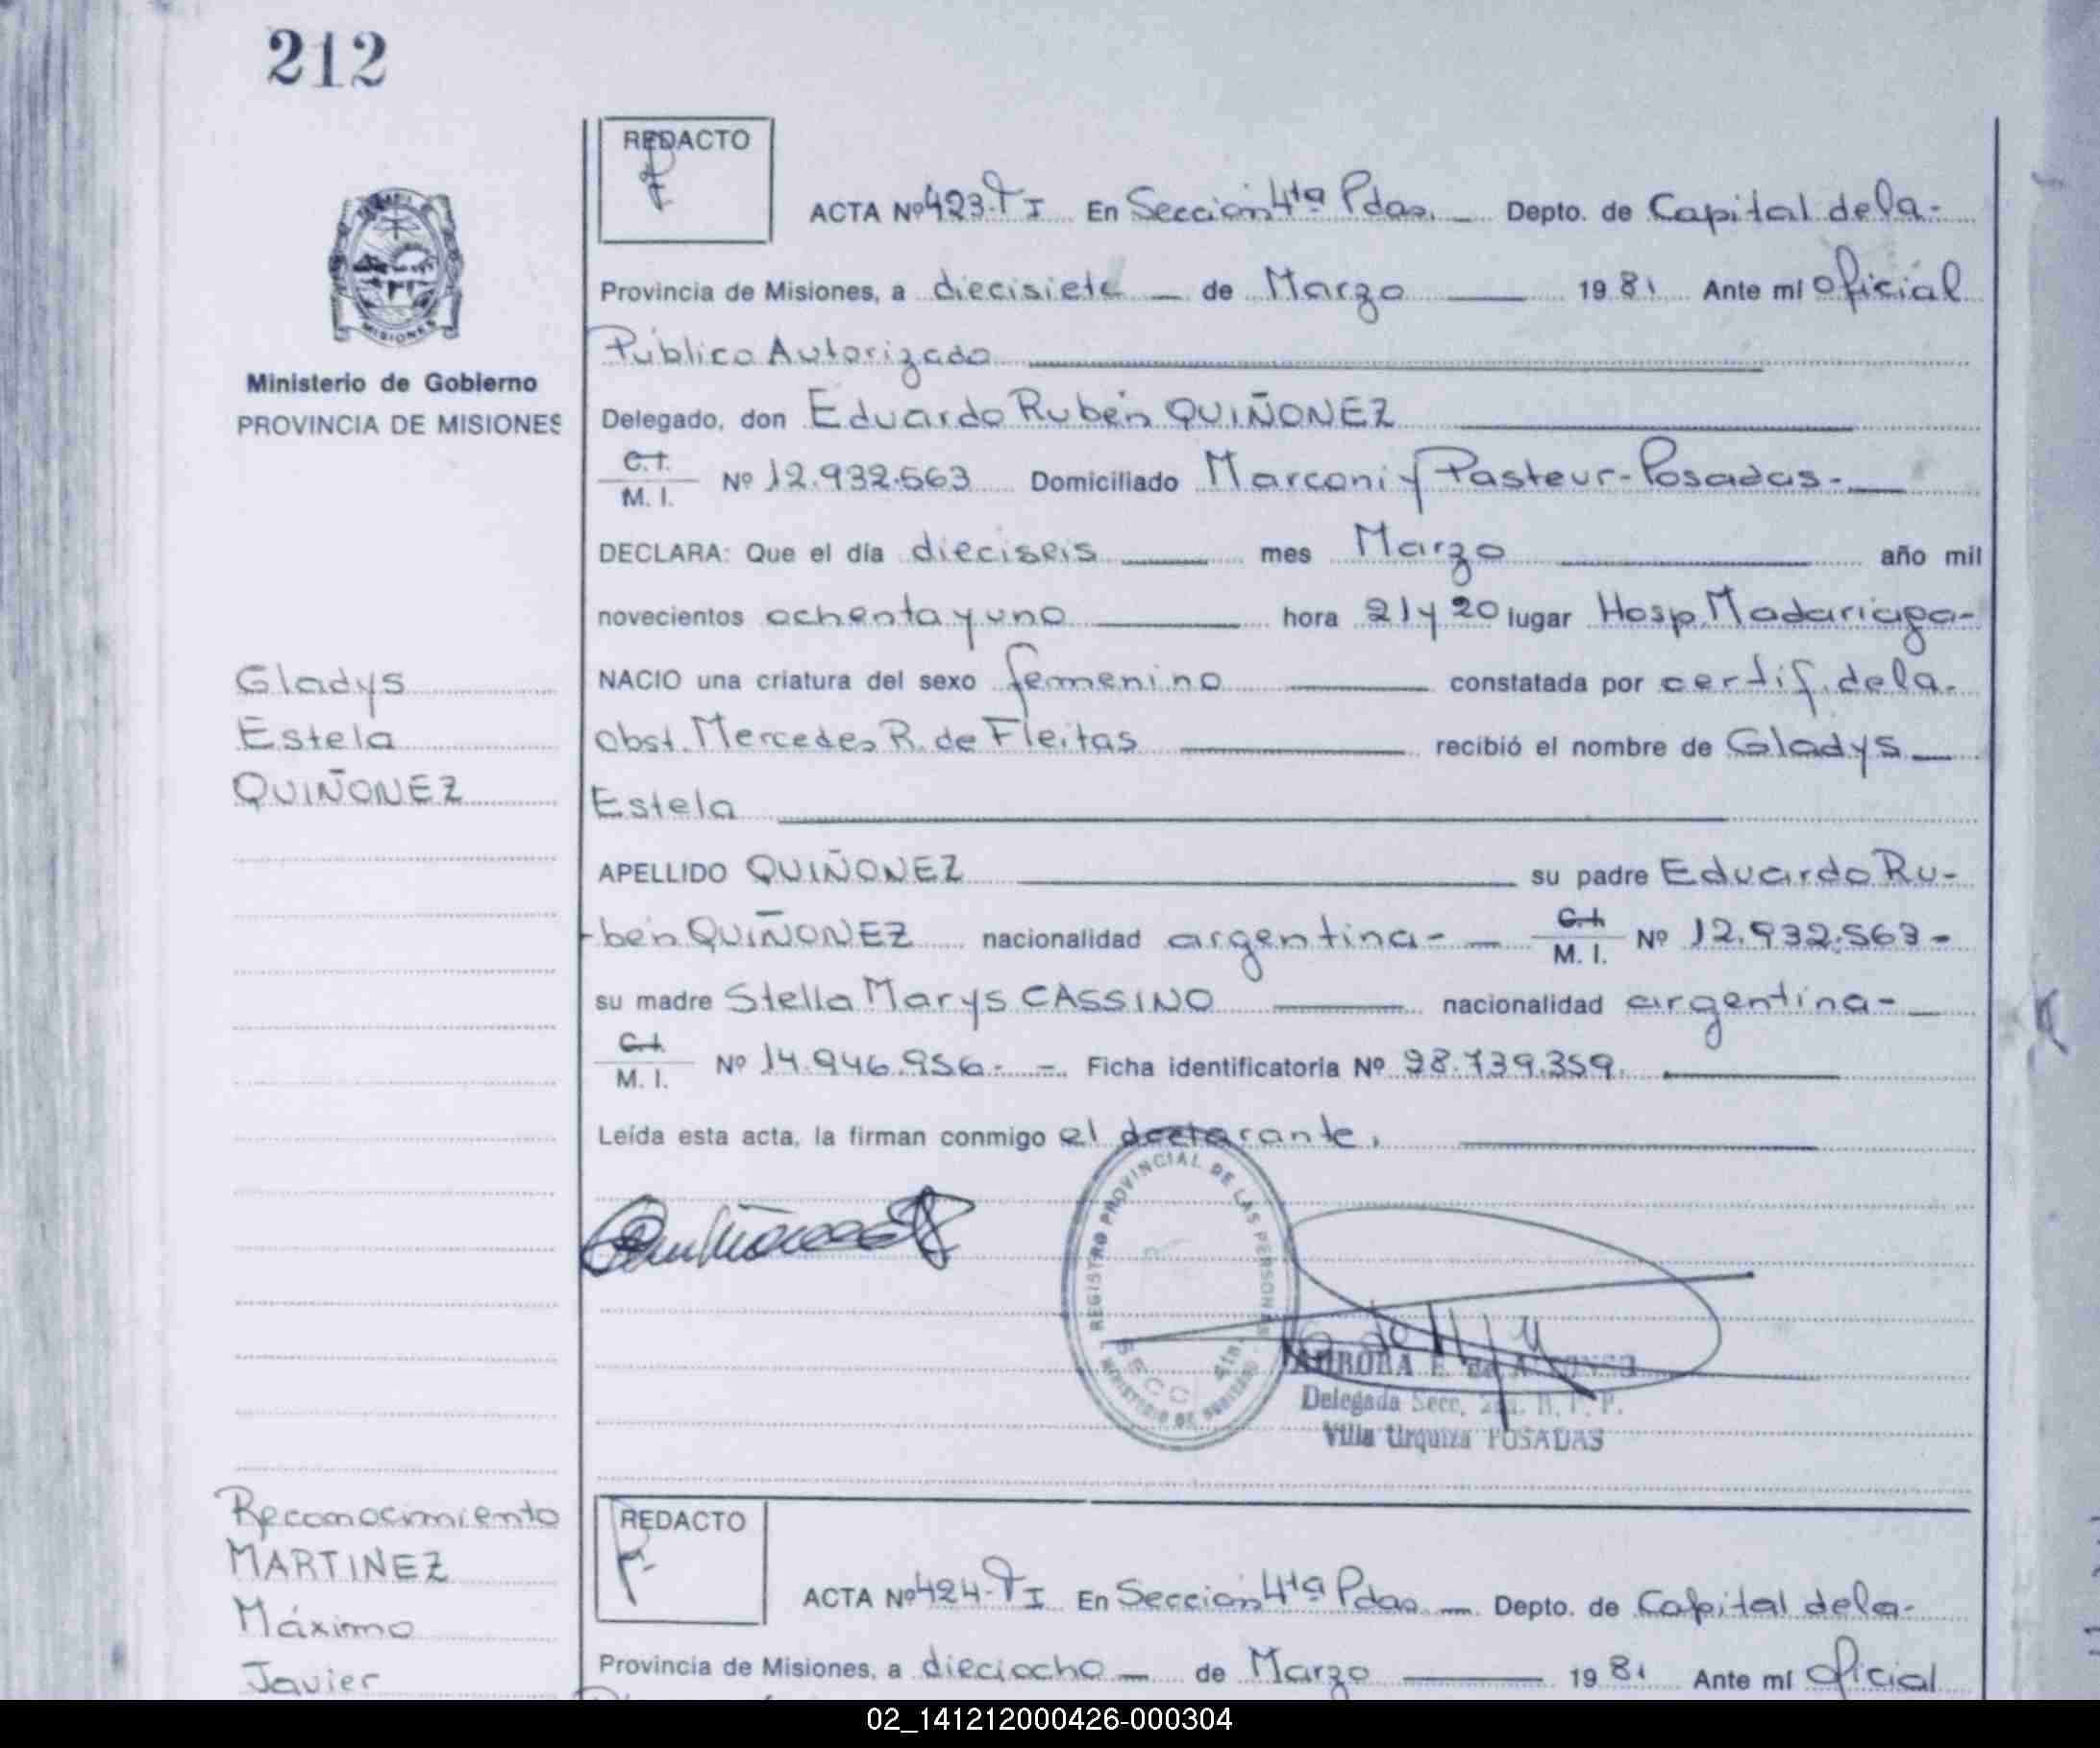 212
REDACTO
ACTA Nº 423-TI En Sección 4ta Pdas. Depto. de Capital de la-
Provincia de Misiones, a diecisiete de Marzo 1981 Ante mí Oficial
Público Autorizado
Ministerio de Gobierno
PROVINCIA DE MISIONES
Delegado, don Eduardo Rubén QUIÑONEZ
C.I. M. I. Nº 12.932.563 Domiciliado Marconi y Pasteur-Posadas-
DECLARA: Que el día dieciseis mes Marzo año mil
novecientos ochenta y uno hora 21 y 20 lugar Hosp. Madariaga-
Gladys
Estela
QUIÑONEZ
NACIO una criatura del sexo femenino constatada por certif. de la-
obst. Mercedes R. de Fleitas recibió el nombre de Gladys
Estela
APELLIDO QUIÑONEZ su padre Eduardo Ru-
-bén QUIÑONEZ nacionalidad argentina- C.I. M. I. Nº 12.932.563-
su madre Stella Marys CASSINO nacionalidad argentina-
C.I. M. I. Nº 14.946.956.- Ficha identificatoria Nº 28.739.359.
Leída esta acta, la firman conmigo el declarante.
REGISTRO PROVINCIAL DE LAS PERSONAS
SECC. 4ta.
MINISTERIO DE GOBIERNO
AURORA E. de
Delegada Secc.
Villa Urquiza POSADAS
Reconocimiento
MARTINEZ
Máximo
Javier
REDACTO
ACTA Nº 424-TI En Sección 4ta Pdas. Depto. de Capital de la-
Provincia de Misiones, a dieciocho de Marzo 1981 Ante mí Oficial
02_141212000426-000304